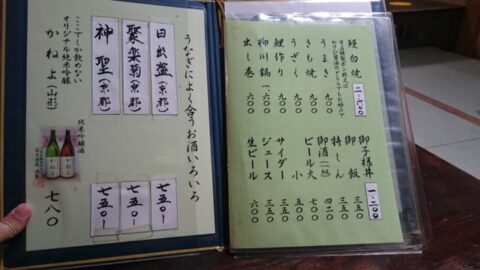 うなぎによく合うお酒いろいろ
日出盛(京都)
七五〇ー
聚楽菊(京都)
七五〇ー
神聖(京都)
七五〇ー
ここでしか飲めない
オリジナル純米吟醸
かねよ(山形)
純米吟醸酒
七八〇
鰻白焼 二、六〇〇
うまき
きも焼 九〇〇
うざく 九〇〇
鯉作り 九〇〇
柳川鍋 一、六〇〇
出し巻 六〇〇
御子様丼 一、二〇〇
御飯 三五〇
特しん 三五〇
御酒(一合) 四二〇
ビール大 七〇〇
小 五〇〇
サイダー 三五〇
ジュース 三五〇
生ビール 六〇〇